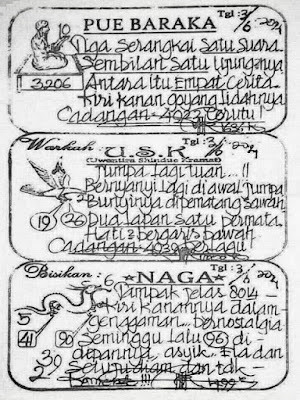 PUE BARAKA
Tgl : 3/6 - 2014
Tiga Serangkai Satu Suara
Sembilan Satu Ujungnya
3206
Antara Itu Empat Cerita
Kiri kanan goyang lidahnya
Cadangan - 4023 Cerutu !
Warkah
U.S.K
Tgl : 3/6 2014
(Uwentira Shindue Kramat)
Jumpa lagi tuan ...!!
Bernyanyi lagi di awal jumpa
Bunyinya di pematang sawah
19 26 Dua lapan satu permata
Hati 2 bergaris bawah
Cadangan - 4039 Berlagu
Bisikan :
NAGA
Tgl : 3/6 2014
6
Tampak jelas 8014 -
Kiri kanannya dalam
5
genggaman ... bernostalgia
41 90 Seminggu lalu (96) di -
depannya asyik.. Ela dan
39
2